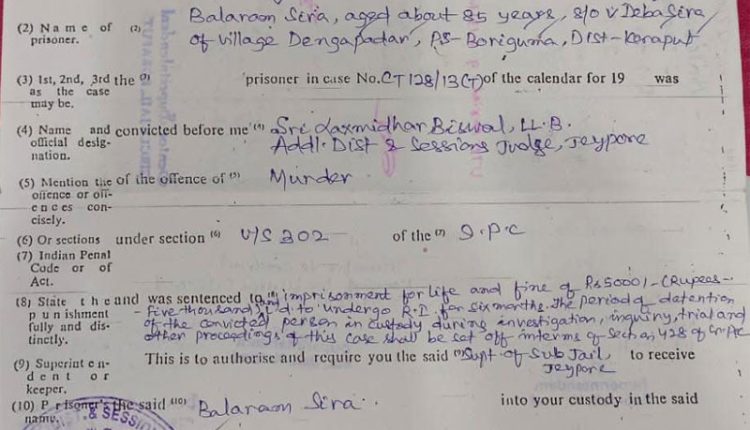 Balaram Sira, aged about 85 years, S/o V Deba Sira
(2) Name of (2) prisoner. of village Dengapadar, PS- Boriguma, Dist- Koraput
(3) 1st, 2nd, 3rd the (3) prisoner in case No. CT 128/13(T) of the calendar for 19 was
as the case
may be.
(4) Name and convicted before me (4) Sri Laxmidhar Biswal, LL.B.
official desig-
nation. Addl. Dist & Sessions Judge, Jeypore
(5) Mention the of the offence of (5) Murder
offence or off-
ences con-
cisely.
(6) Or sections under section (6) U/S 302 of the (7) I.P.C
(7) Indian Penal
Code or of
Act.
(8) State the and was sentenced to imprisonment for life and fine of Rs 5000/- (Rupees-
punishment - Five thousand) I/d to undergo R.I. for six months. The period of detention
fully and dis- of the convicted person in custody during investigation, inquiry, trial and
tinctly. other proceedings of this case shall be set off interms of Section 428 of Cr.P.C
(9) Superinten- This to authorise and require you the said (9) Supt. of Sub Jail, to receive
dent or Jeypore
keeper,
(10) Prisoner's the said (10) Balaram Sira. into your custody in the said
name.
& SESSI